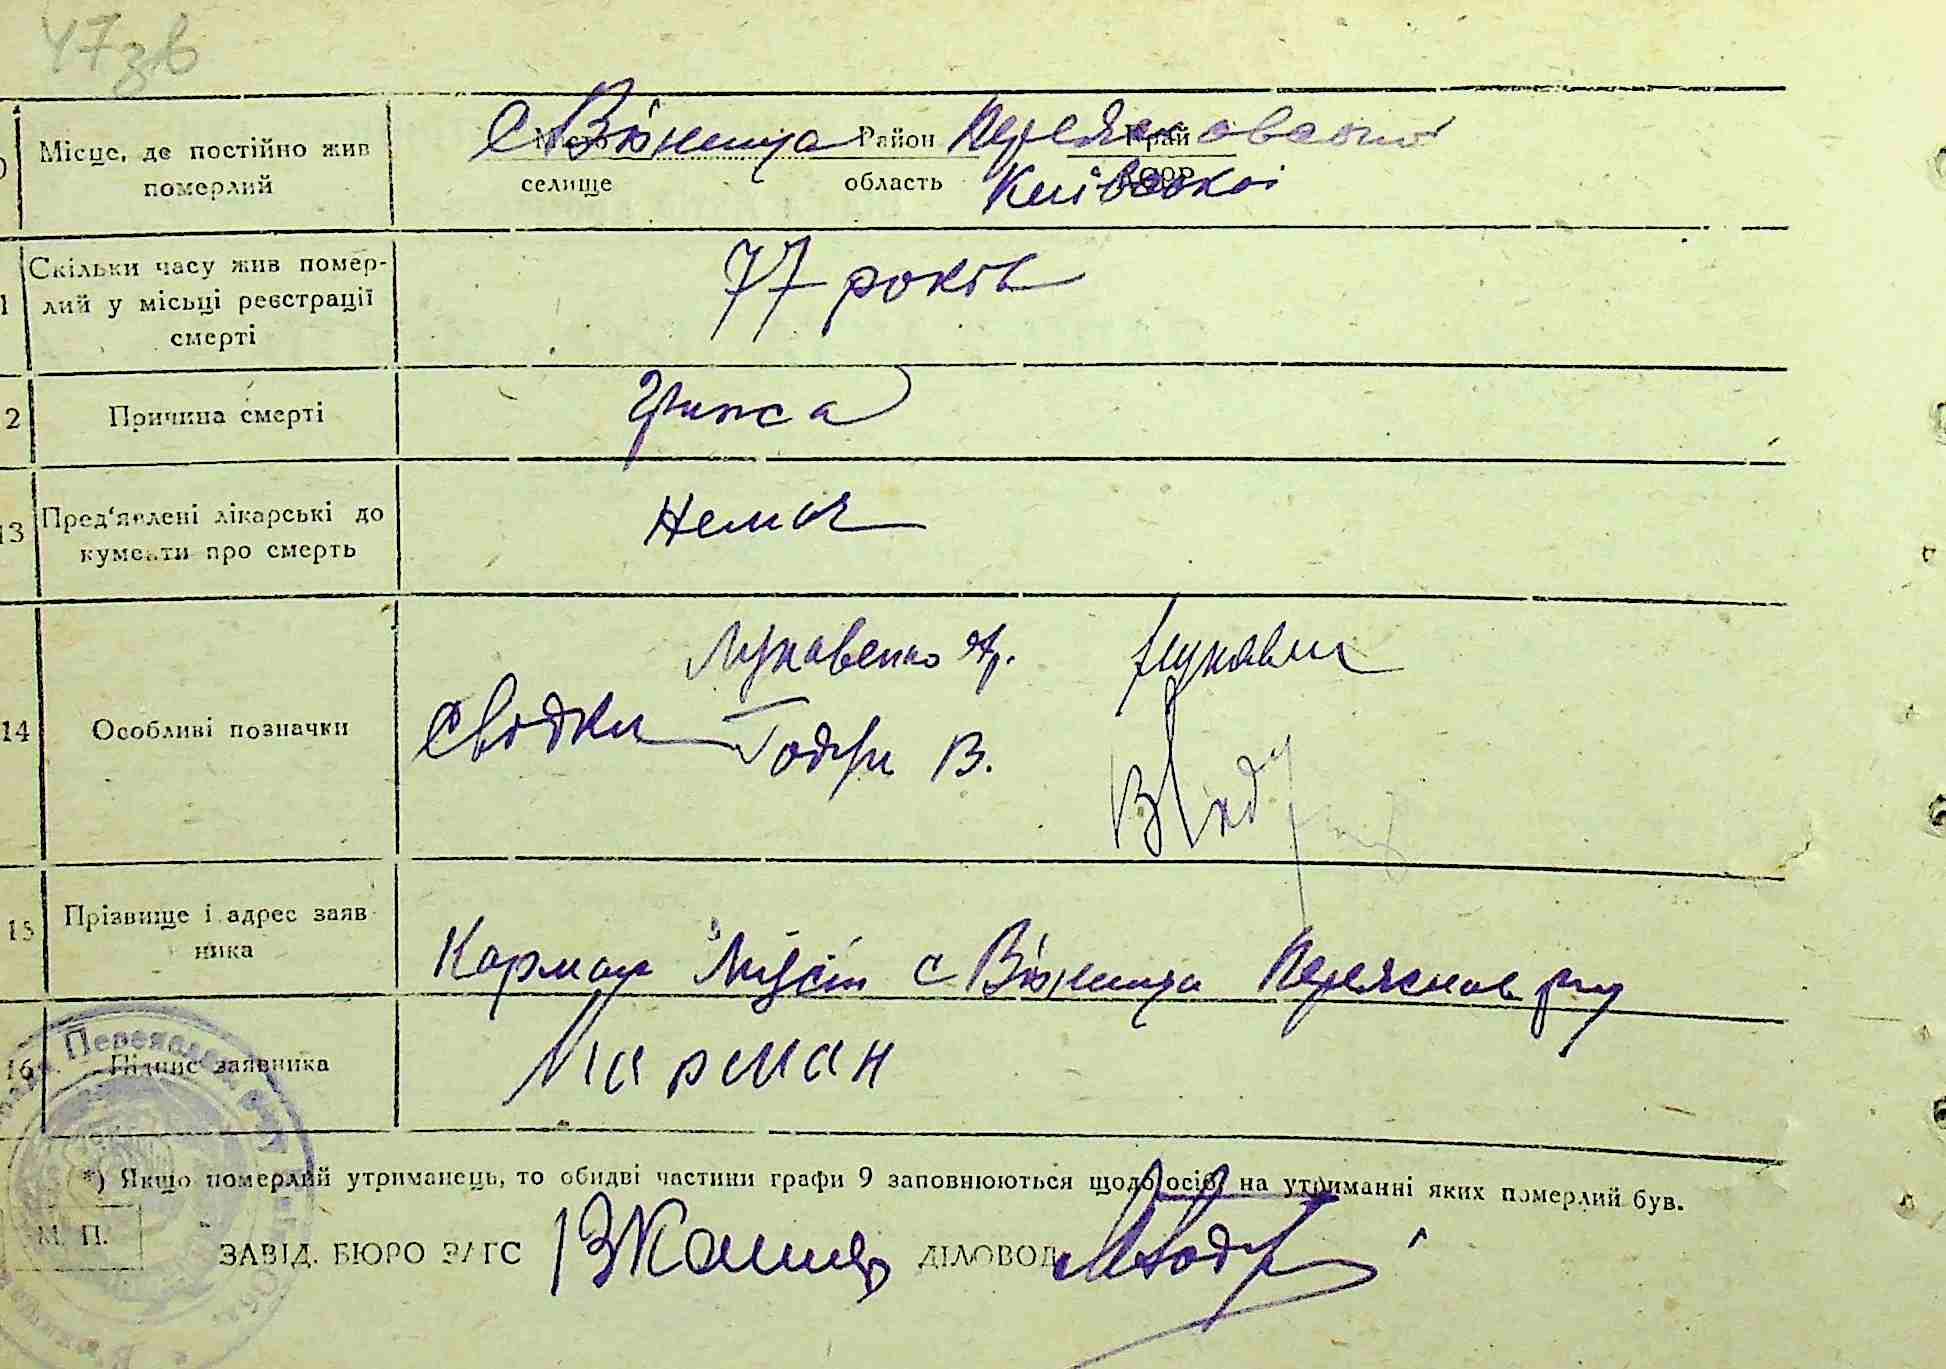 47 зв
Місце, де постійно жив померлий
с Вюнища Район Переяславської Край
селище область Київської
Скільки часу жив помер-
лий у місьці реєстрації
смерті
77 років
2 Причина смерті
Грижа
13 Пред'явлені лікарські до
кументи про смерть
Немає
Луковенко
14 Особливі позначки
Свідки Годун В.
15 Прізвище і адрес заяв
ника
Карман с Вюнища Переяслав р-ну
16 Підпис заявника
Карман
*) Якщо померлий утриманець, то обидві частини графи 9 заповнюються щодо осіб, на утриманні яких померлий був.
М. П.
ЗАВІД. БЮРО ЗАГС ДІЛОВОД